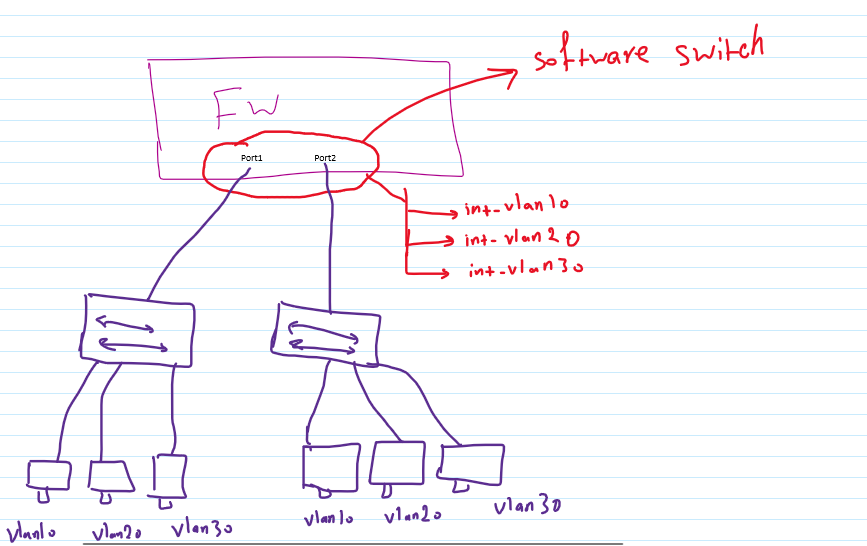 software switch
FW
Port1
Port2
int-vlan10
int-vlan20
int-vlan30
vlan10
vlan20
vlan30
vlan10
vlan20
vlan30